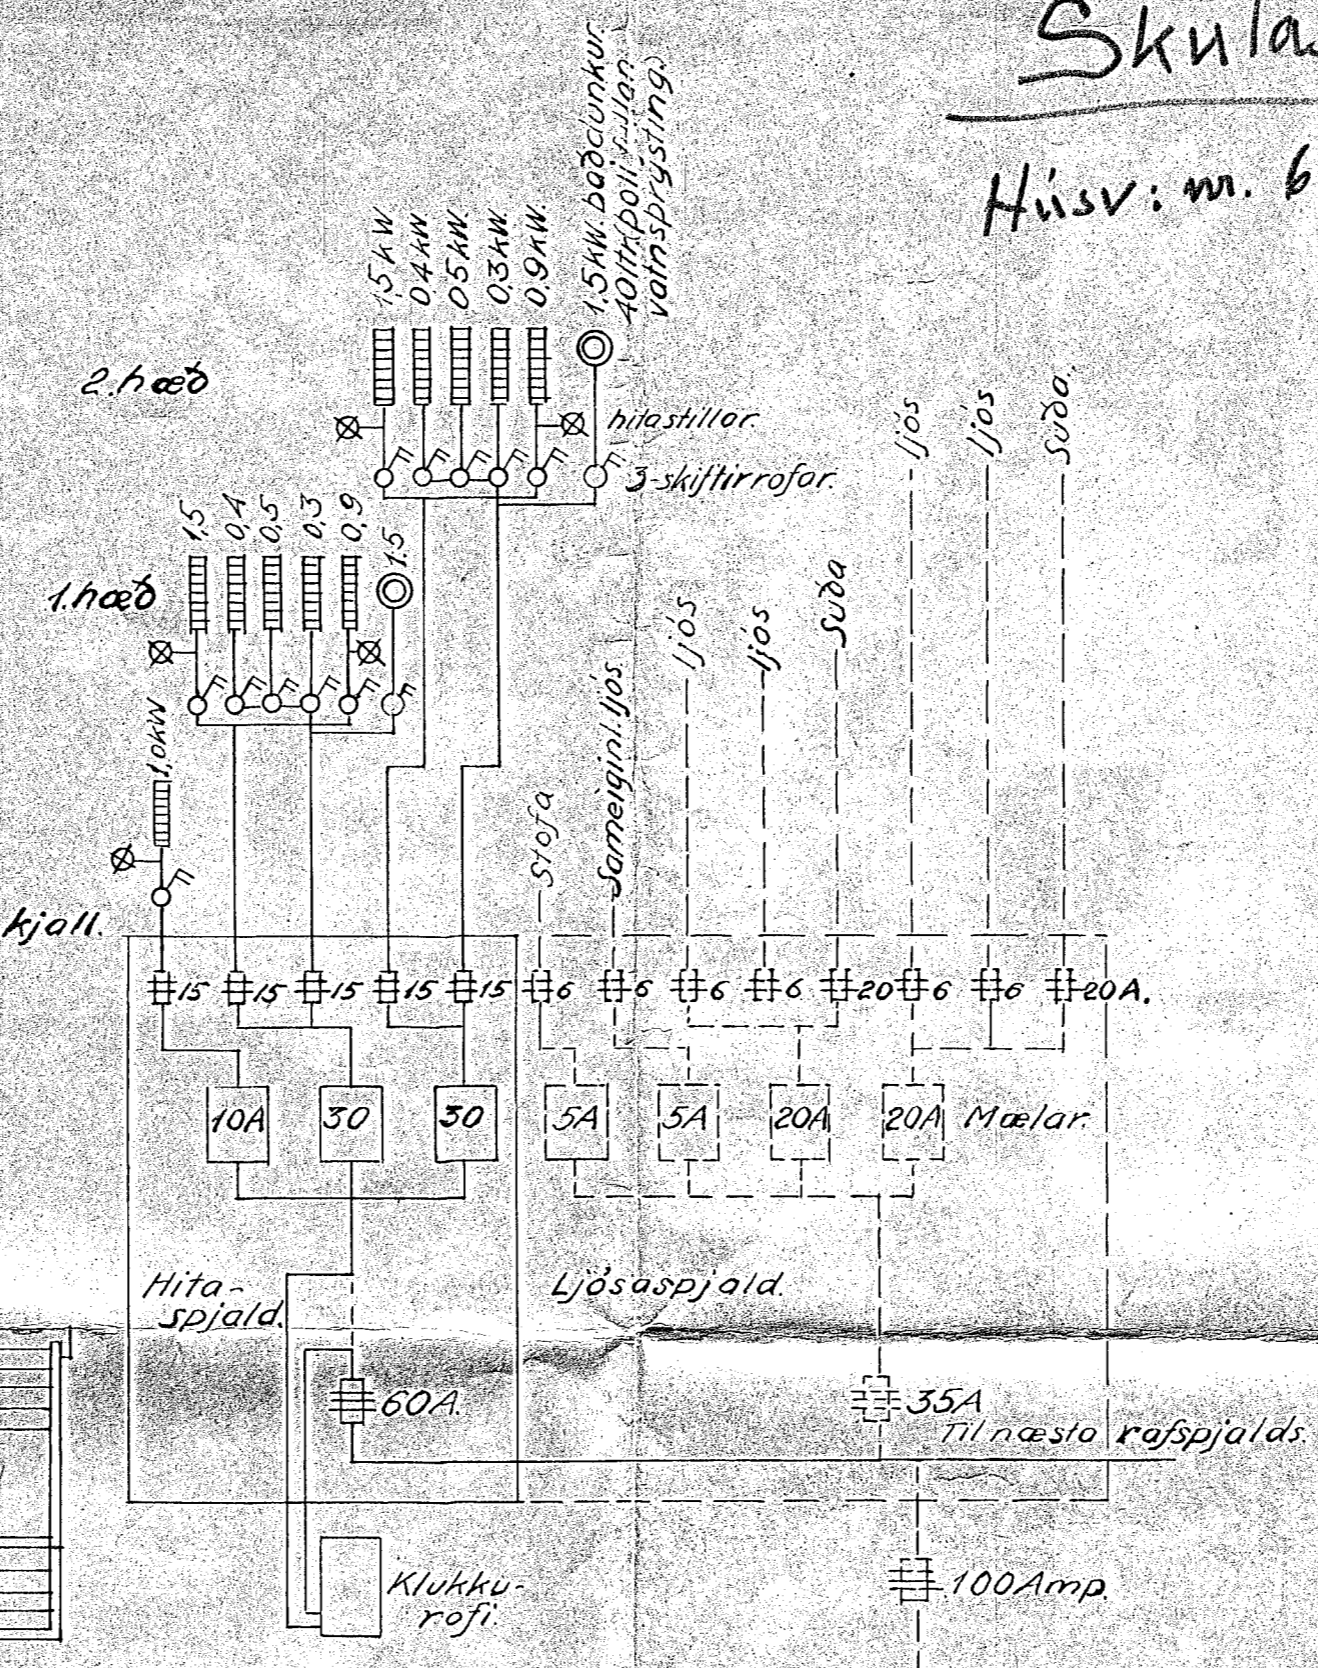 Skula
Húsv: nr. 6
1,5 kW
0,4 kW
0,5 kW.
0,3 kW.
0,9 kW.
1.5 kW. baðdunkur.
40 ltr. þoli fullan
vatnsþrýsting.
2. hæð
hitastillar.
3-skiftirrofar.
ljós
ljós
Suða.
1,5
0,4
0,5
0,3
0,9
1.5
1. hæð
ljós
ljós
Suða
1,0 kW
Stofa
Sameiginl. ljós.
kjall.
15
15
15
15
15
6
6
6
6
20
6
6
20 A.
10A
30
30
5A
5A
20A
20A
Mælar.
Hita-
spjald.
Ljósaspjald.
60A.
35A
Til næsta rafspjalds.
Klukku-
rofi.
100 Amp.